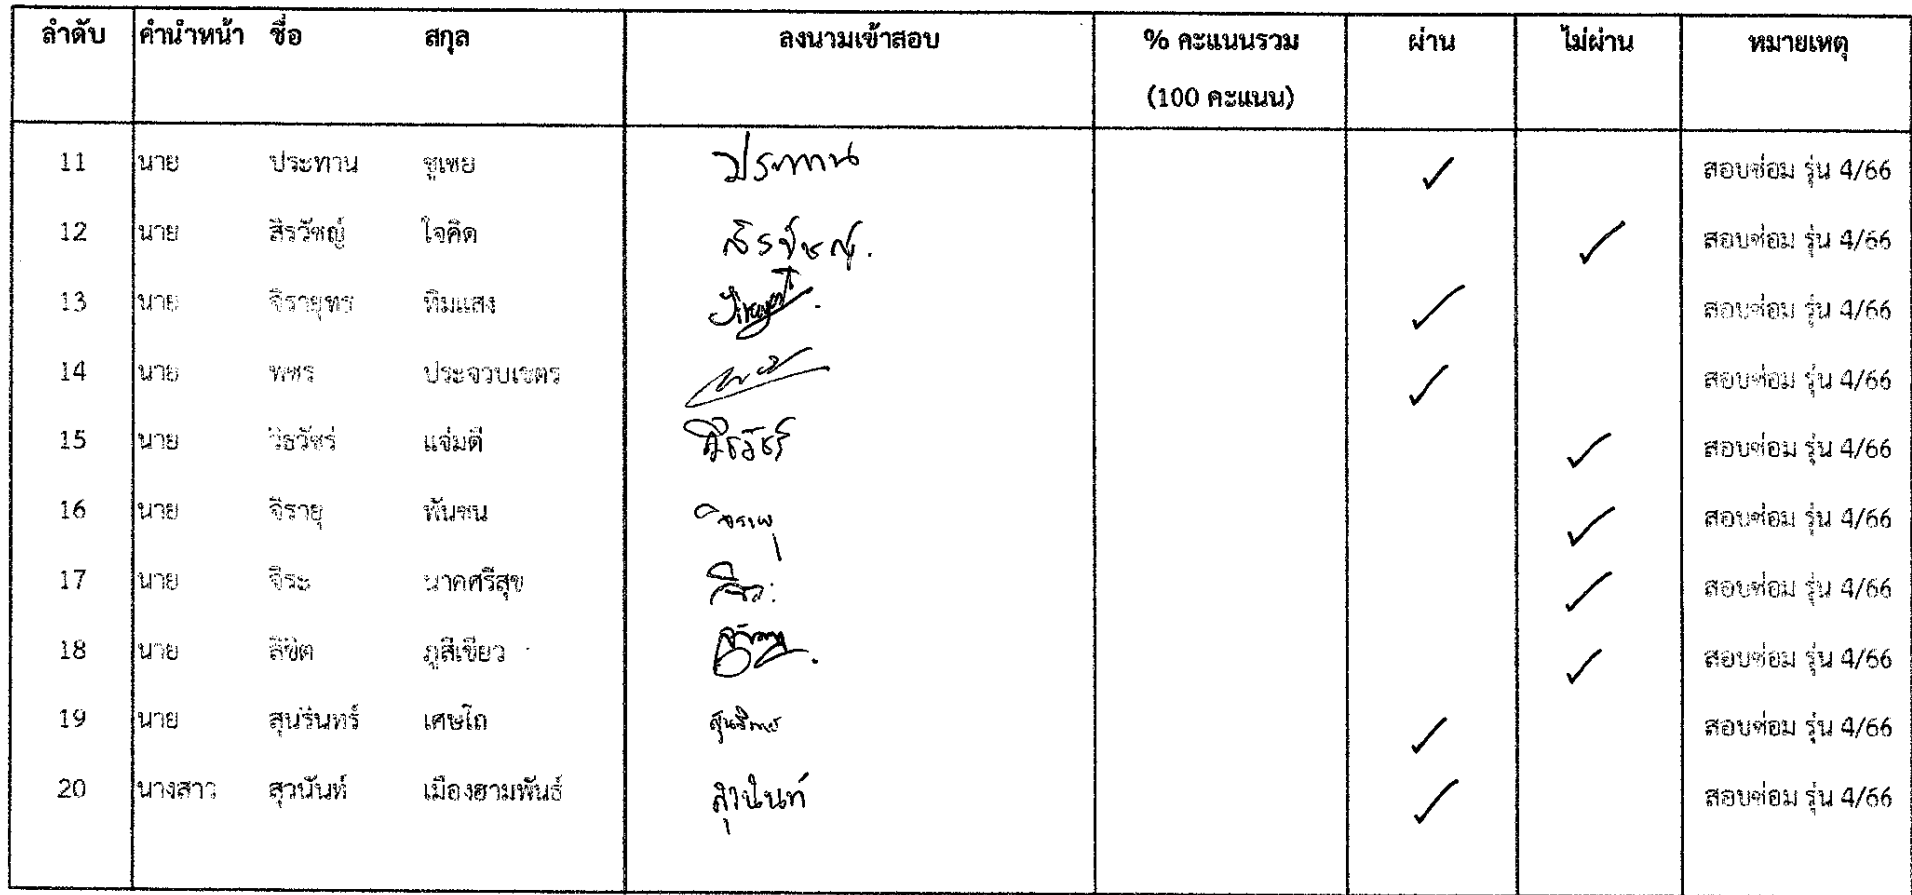 ลำดับ คำนำหน้า ชื่อ สกุล ลงนามเข้าสอบ % คะแนนรวม ผ่าน ไม่ผ่าน หมายเหตุ
(100 คะแนน)
11 นาย ประทาน ชูเชย ประทาน ✓ สอบซ่อม รุ่น 4/66
12 นาย สิรวิชญ์ ใจคิด สิรวิชญ์. ✓ สอบซ่อม รุ่น 4/66
13 นาย จิรายุทร ทิมแสง ✓ สอบซ่อม รุ่น 4/66
14 นาย พชร ประจวบเขตร ✓ สอบซ่อม รุ่น 4/66
15 นาย วิธวัชร์ แจ่มดี วิธวัชร์ ✓ สอบซ่อม รุ่น 4/66
16 นาย จิรายุ พันชน จิรายุ ✓ สอบซ่อม รุ่น 4/66
17 นาย จิระ นาคศรีสุข จิระ ✓ สอบซ่อม รุ่น 4/66
18 นาย ลิขิต ภูสีเขียว ✓ สอบซ่อม รุ่น 4/66
19 นาย สุนรินทร์ เศษโถ สุนรินทร์ ✓ สอบซ่อม รุ่น 4/66
20 นางสาว สุวนันท์ เมืองฮามพันธ์ สุวนันท์ ✓ สอบซ่อม รุ่น 4/66